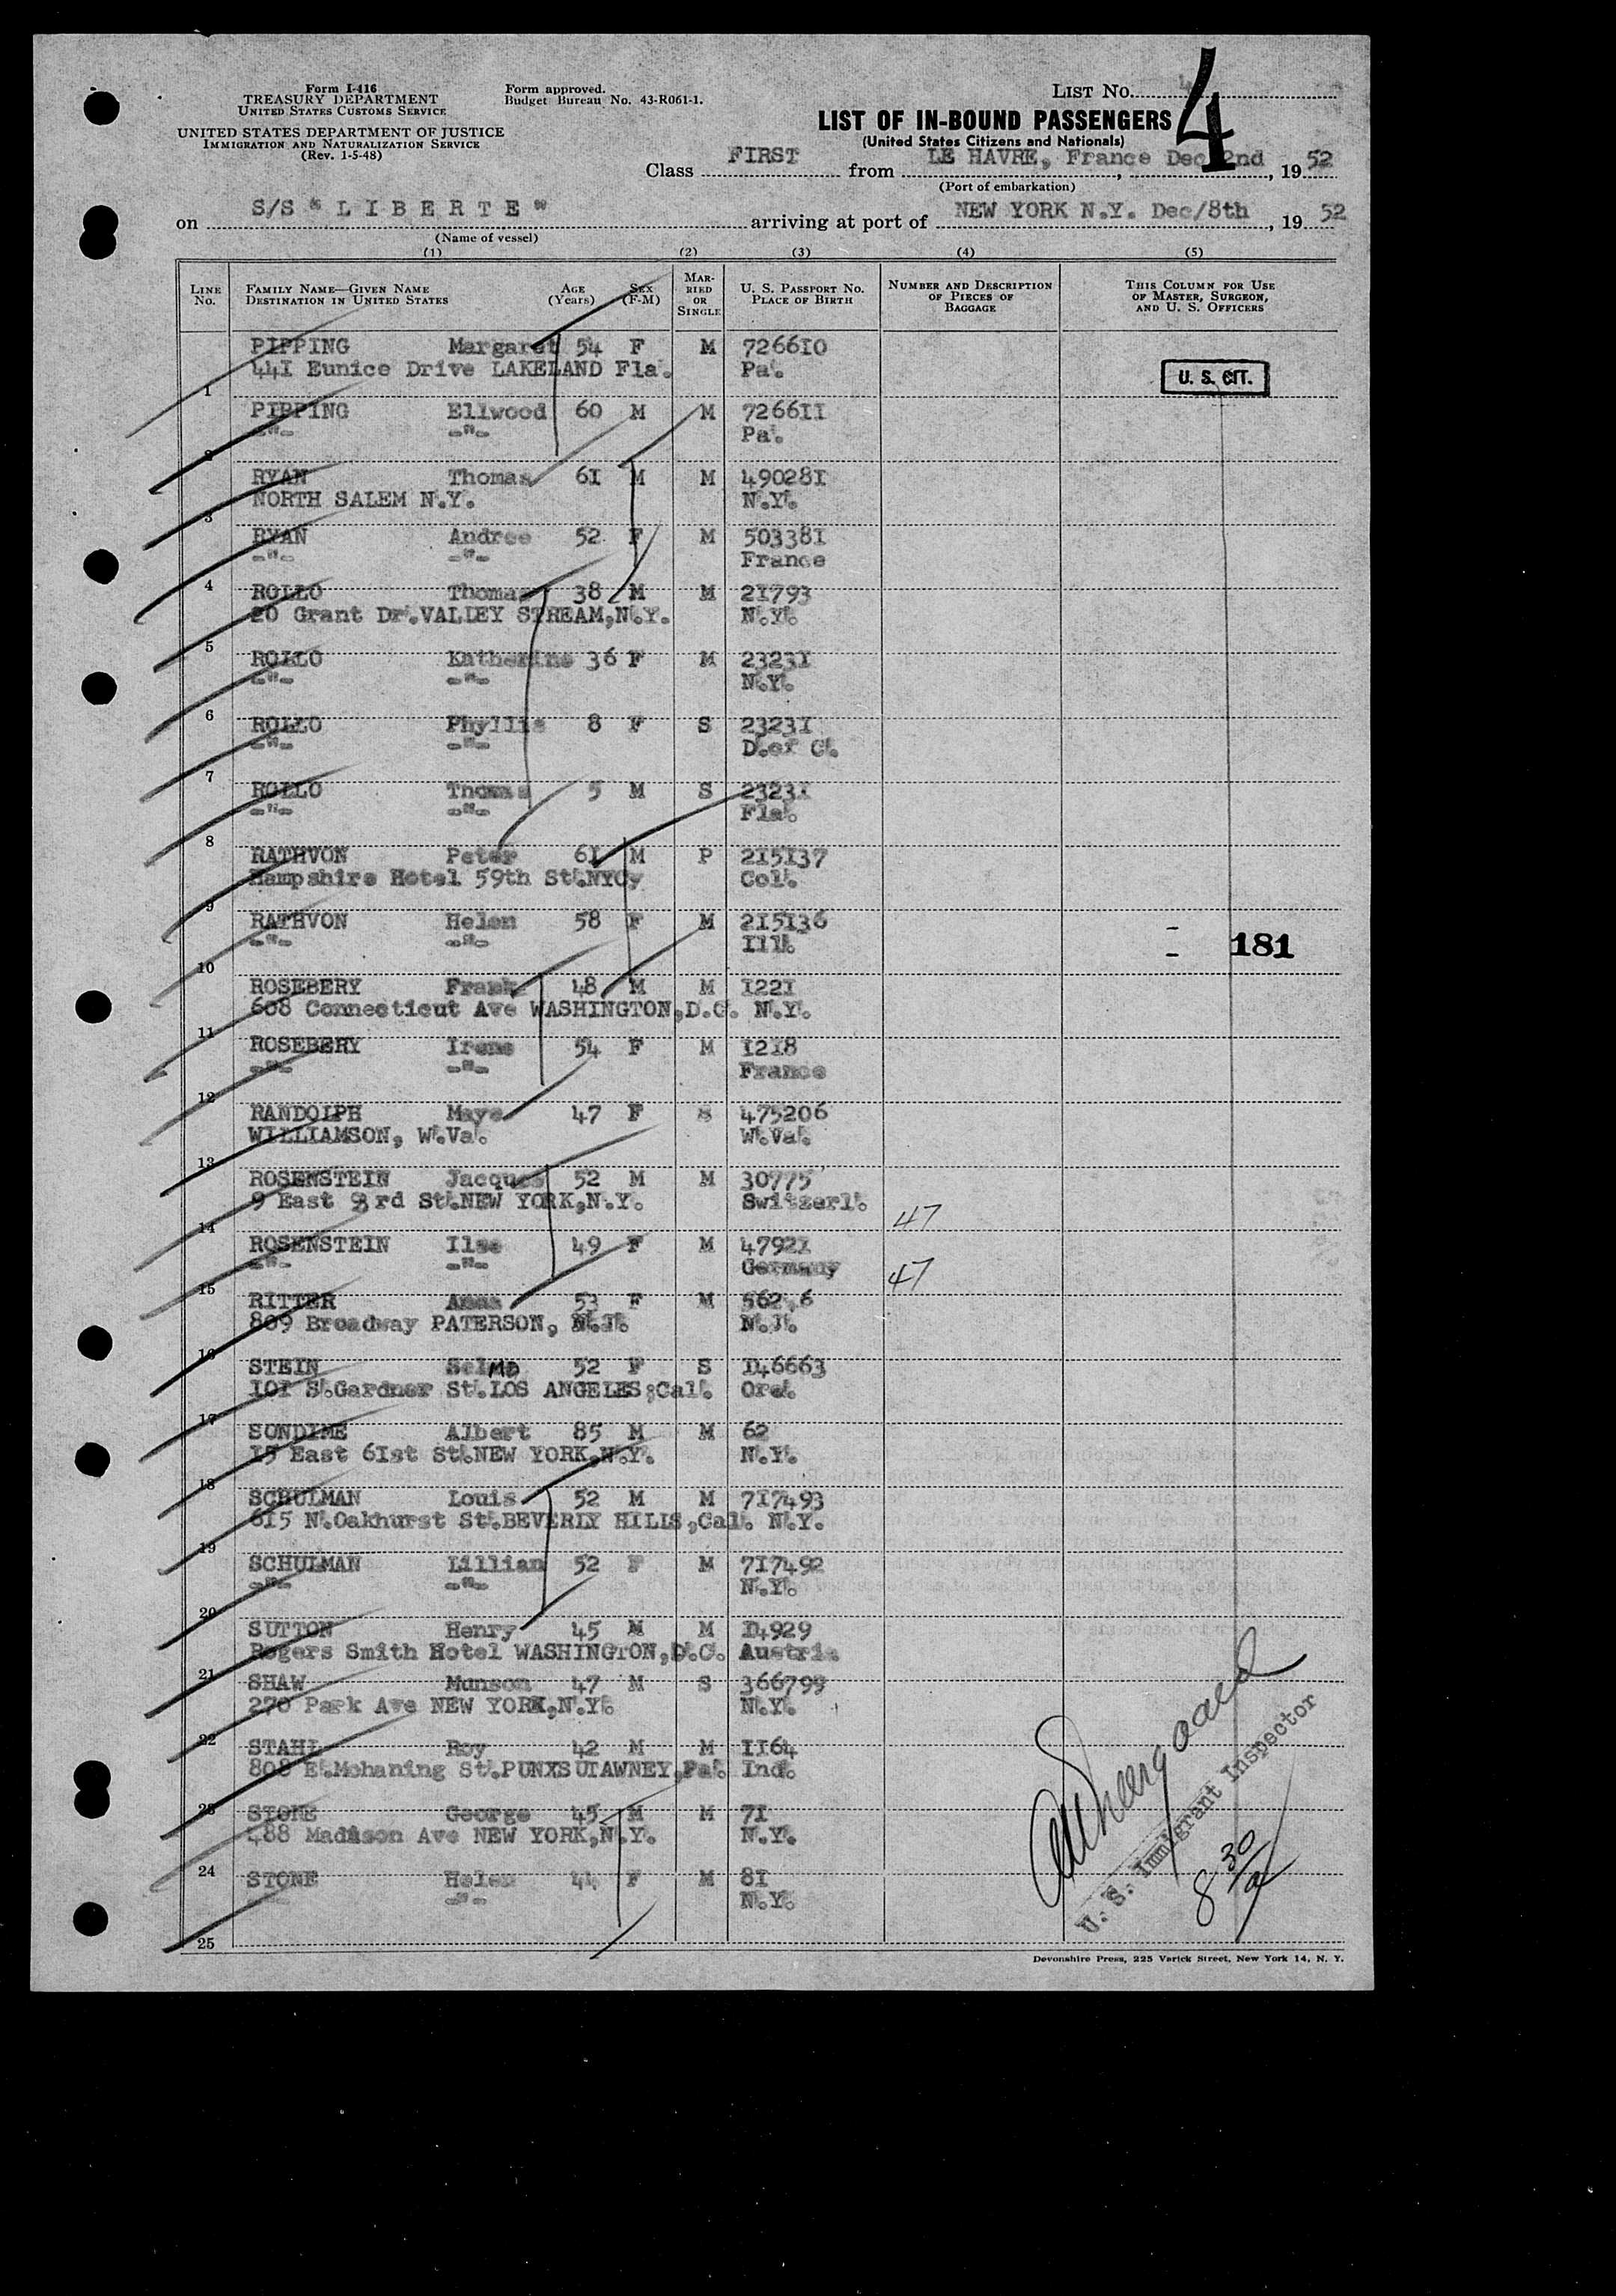 Form I-416
TREASURY DEPARTMENT
UNITED STATES CUSTOMS SERVICE
UNITED STATES DEPARTMENT OF JUSTICE
IMMIGRATION AND NATURALIZATION SERVICE
(Rev. 1-5-48)
Form approved.
Budget Bureau No. 43-R061-1.
LIST No. 4
LIST OF IN-BOUND PASSENGERS
(United States Citizens and Nationals)
Class FIRST from LE HAVRE, France Dec 2nd, 19 52
(Port of embarkation)
on S/S " L I B E R T E " arriving at port of NEW YORK N.Y. Dec/8th, 19 52
(Name of vessel)
(1) (2) (3) (4) (5)
LINE No. FAMILY NAME—GIVEN NAME DESTINATION IN UNITED STATES AGE (Years) SEX (F-M) MARRIED OR SINGLE U. S. PASSPORT NO. PLACE OF BIRTH NUMBER AND DESCRIPTION OF PIECES OF BAGGAGE THIS COLUMN FOR USE OF MASTER, SURGEON, AND U. S. OFFICERS
PIPPING Margaret 54 F M 726610
441 Eunice Drive LAKELAND Fla. Pa.
U. S. CIT.
1
PIPPING Ellwood 60 M M 726611
-"- -"- Pa.
2
RYAN Thomas 61 M M 490281
NORTH SALEM N.Y. N.Y.
3
RYAN Andree 52 F M 503381
-"- -"- France
4
ROLLO Thomas 38 M M 21793
20 Grant Dr.VALLEY STREAM,N.Y. N.Y.
5
ROLLO Katherine 36 F M 23231
-"- -"- N.Y.
6
ROLLO Phyllis 8 F S 23231
-"- -"- D.of C.
7
ROLLO Thomas 5 M S 23231
-"- -"- Fla.
8
RATHVON Peter 61 M P 215137
Hampshire Hotel 59th St.NYCy Col.
9
RATHVON Helen 58 F M 215136
-"- -"- Ill. 181
10
ROSEBERY Frank 48 M M 1221
608 Connecticut Ave WASHINGTON,D.C. N.Y.
11
ROSEBERY Irene 54 F M 1218
-"- -"- France
12
RANDOLPH Maye 47 F S 475206
WILLIAMSON, W.Va. W.Va.
13
ROSENSTEIN Jacques 52 M M 30775
9 East rd St.NEW YORK,N.Y. Switzerl. 47
14
ROSENSTEIN Ilse 49 F M 47921
-"- -"- Germany 47
15
RITTER Anna 53 F M
809 Broadway PATERSON, N.J. N.J.
16
STEIN Selma 52 F S 146663
101 S.Gardner St.LOS ANGELES,Cal. Ore.
17
SONDIME Albert 85 M M 62
15 East 61st St.NEW YORK,N.Y. N.Y.
18
SCHULMAN Louis 52 M M 717493
615 N.Oakhurst St.BEVERLY HILLS,Cal. N.Y.
19
SCHULMAN Lillian 52 F M 717492
-"- -"- N.Y.
20
SUTTON Henry 45 M M 14929
Rogers Smith Hotel WASHINGTON,D.C. Austria
21
SHAW Munson 47 M S 366799
270 Park Ave NEW YORK,N.Y. N.Y.
22
STAHL Roy 42 M M 1164
808 E.Mahaning St.PUNXSUTAWNEY,Pa. Ind.
23
STONE George 45 M M 71
488 Madison Ave NEW YORK,N.Y. N.Y.
24
STONE Helen 44 F M 81
-"- N.Y.
25
U. S. Immigrant Inspector
8 30/a
Devonshire Press, 225 Varick Street, New York 14, N. Y.